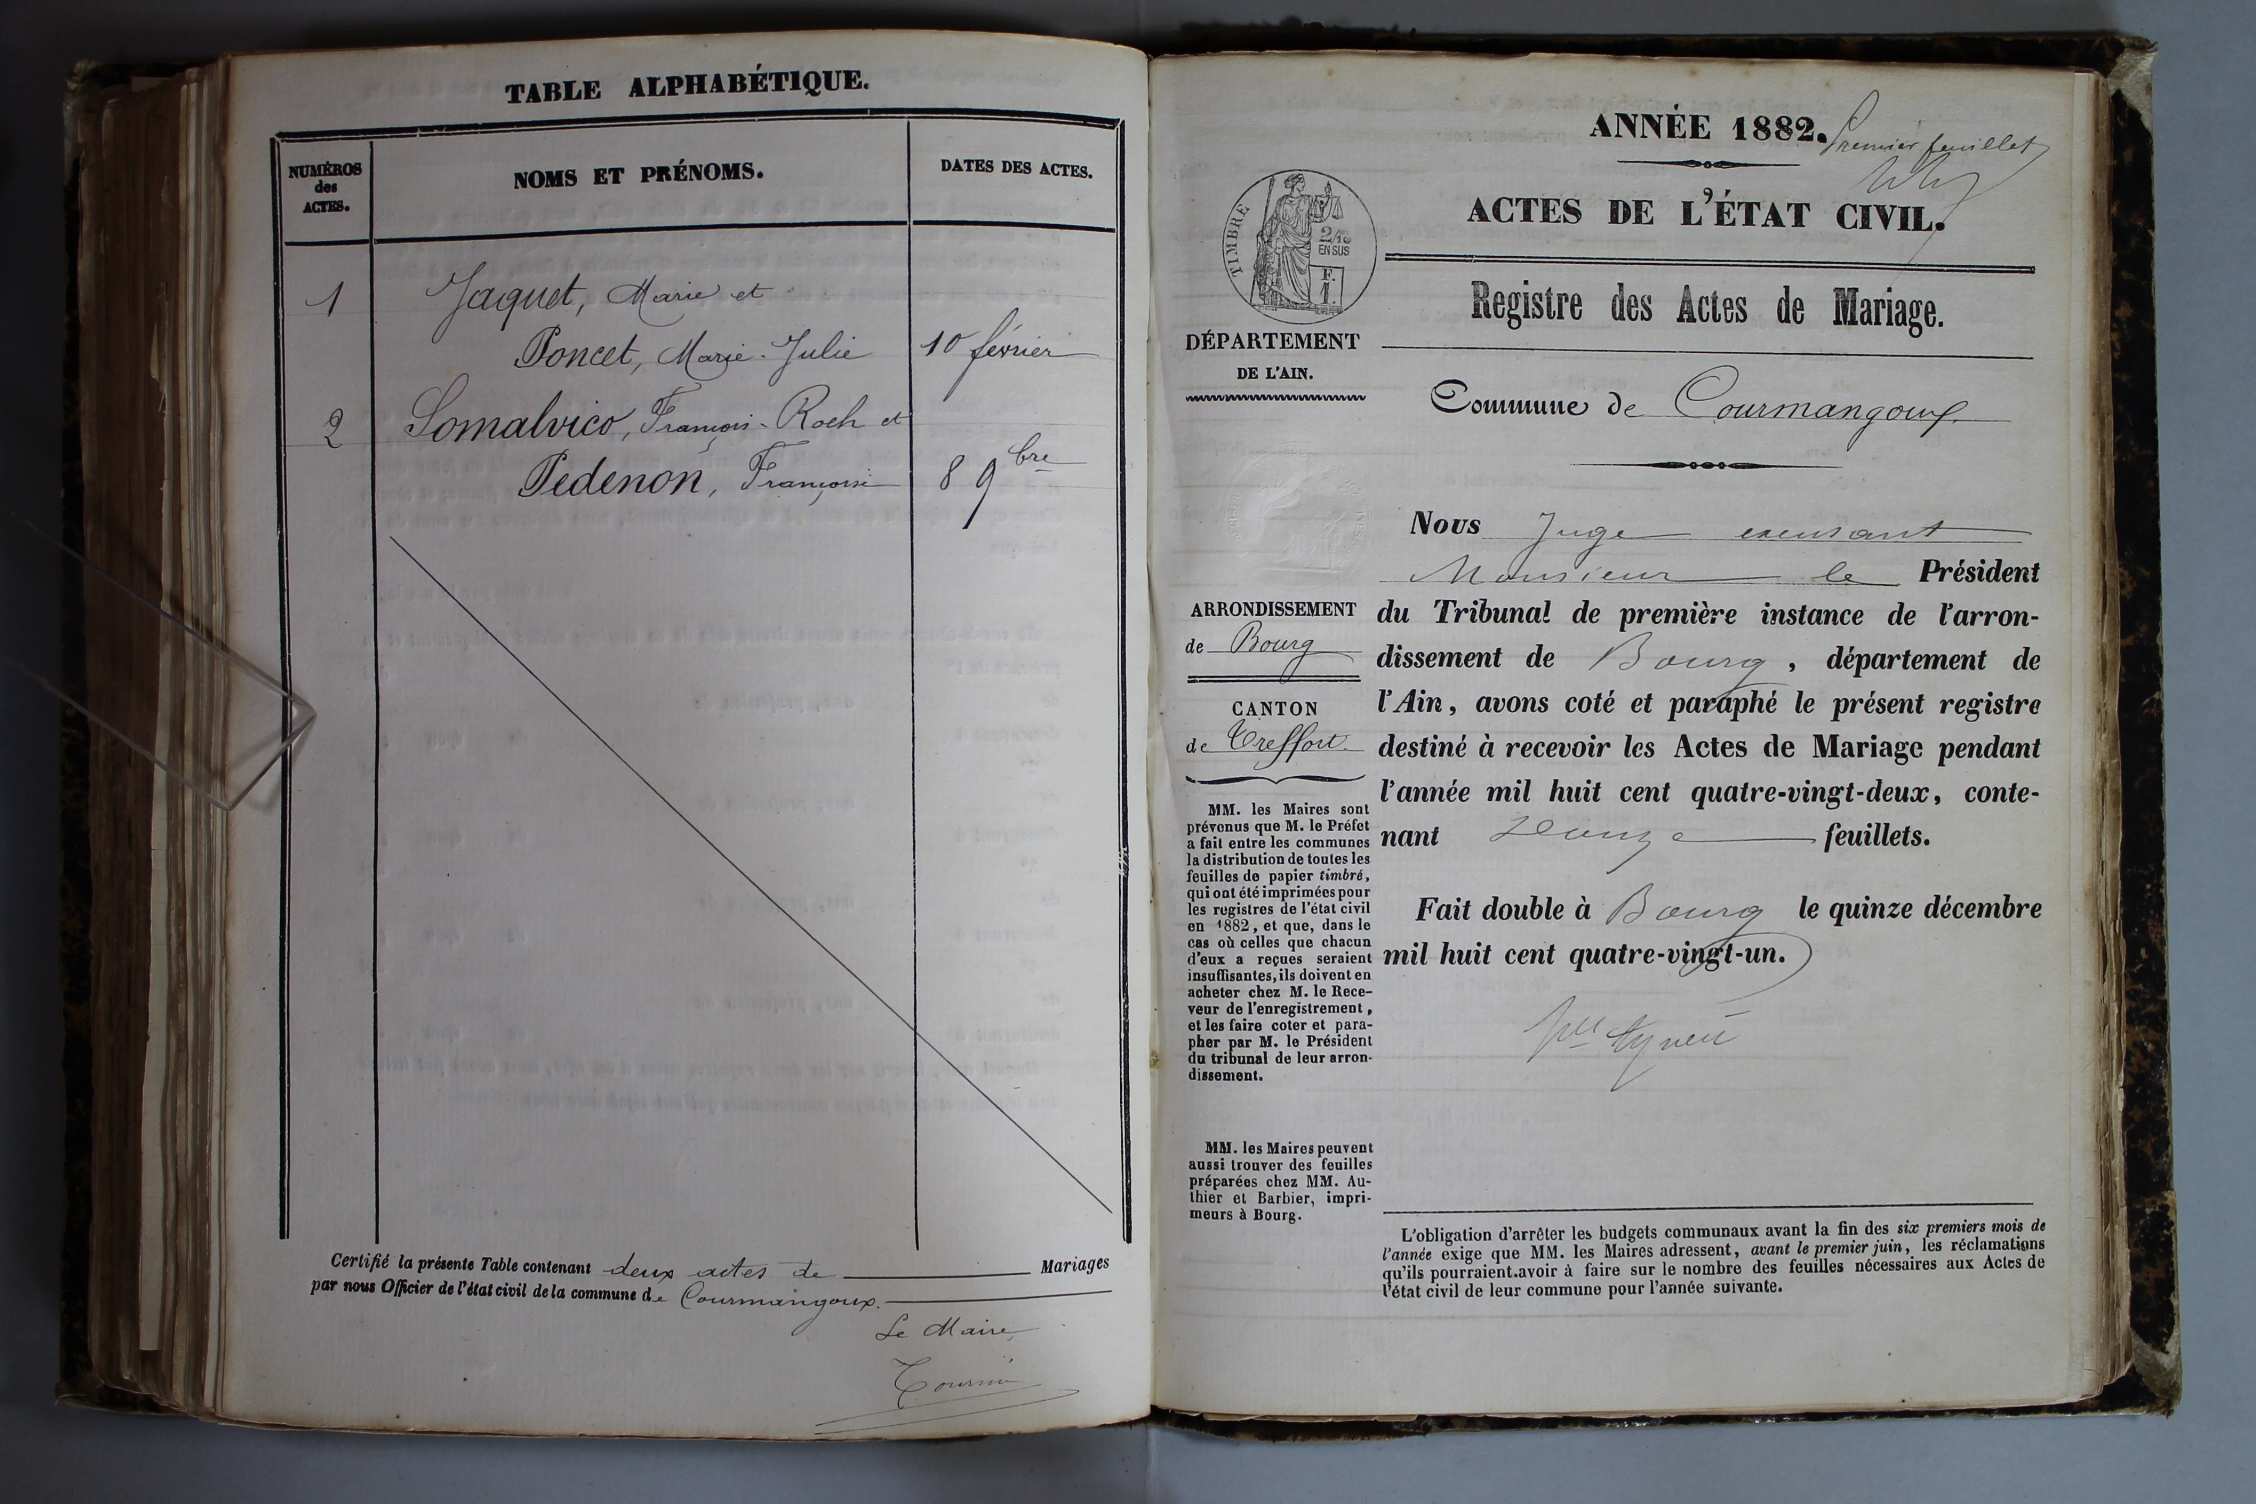 TABLE ALPHABÉTIQUE.
NUMÉROS
des
ACTES.
NOMS ET PRÉNOMS.
DATES DES ACTES.
1 Jaquet, Marie et
Poncet, Marie-Julie 10 février
2 Somalvico, François-Roch et
Pedenon, Françoise 8 9bre
Certifié la présente Table contenant deux actes de Mariages
par nous Officier de l'état civil de la commune de Courmangoux.
Le Maire,
ANNÉE 1882.
Premier feuillet
ACTES DE L'ÉTAT CIVIL.
TIMBRE
2/10
EN SUS
F.
1.
Registre des Actes de Mariage.
DÉPARTEMENT
DE L'AIN.
Commune de Courmangoux
Nous Juge
Monsieur le Président
du Tribunal de première instance de l'arron-
dissement de Bourg, département de
l'Ain, avons coté et paraphé le présent registre
destiné à recevoir les Actes de Mariage pendant
l'année mil huit cent quatre-vingt-deux, conte-
nant feuillets.
Fait double à Bourg le quinze décembre
mil huit cent quatre-vingt-un.
ARRONDISSEMENT
de Bourg
CANTON
de Treffort
MM. les Maires sont
prévenus que M. le Préfet
a fait entre les communes
la distribution de toutes les
feuilles de papier timbré,
qui ont été imprimées pour
les registres de l'état civil
en 1882, et que, dans le
cas où celles que chacun
d'eux a reçues seraient
insuffisantes, ils doivent en
acheter chez M. le Rece-
veur de l'enregistrement,
et les faire coter et para-
pher par M. le Président
du tribunal de leur arron-
dissement.
MM. les Maires peuvent
aussi trouver des feuilles
préparées chez MM. Au-
thier et Barbier, impri-
meurs à Bourg.
L'obligation d'arrêter les budgets communaux avant la fin des six premiers mois de
l'année exige que MM. les Maires adressent, avant le premier juin, les réclamations
qu'ils pourraient avoir à faire sur le nombre des feuilles nécessaires aux Actes de
l'état civil de leur commune pour l'année suivante.